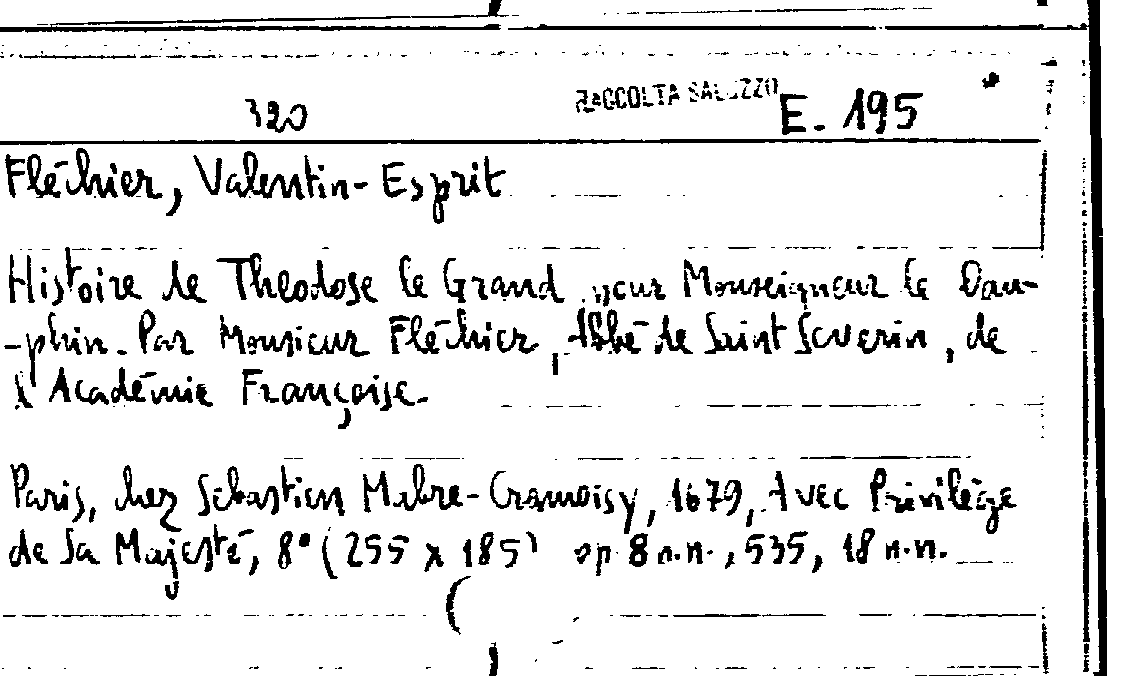 320 RACCOLTA SALUZZO E. 195
Fléchier, Valentin-Esprit
Histoire de Theodose le Grand pour Monseigneur le Dau-
-phin. Par Monsieur Fléchier, Abbé de Saint Severin, de
l'Académie Françoise.
Paris, chez Sebastien Mabre-Cramoisy, 1679, Avec Privilège
de Sa Majesté, 8° (255 x 185) pp 8 n.n., 535, 18 n.n.